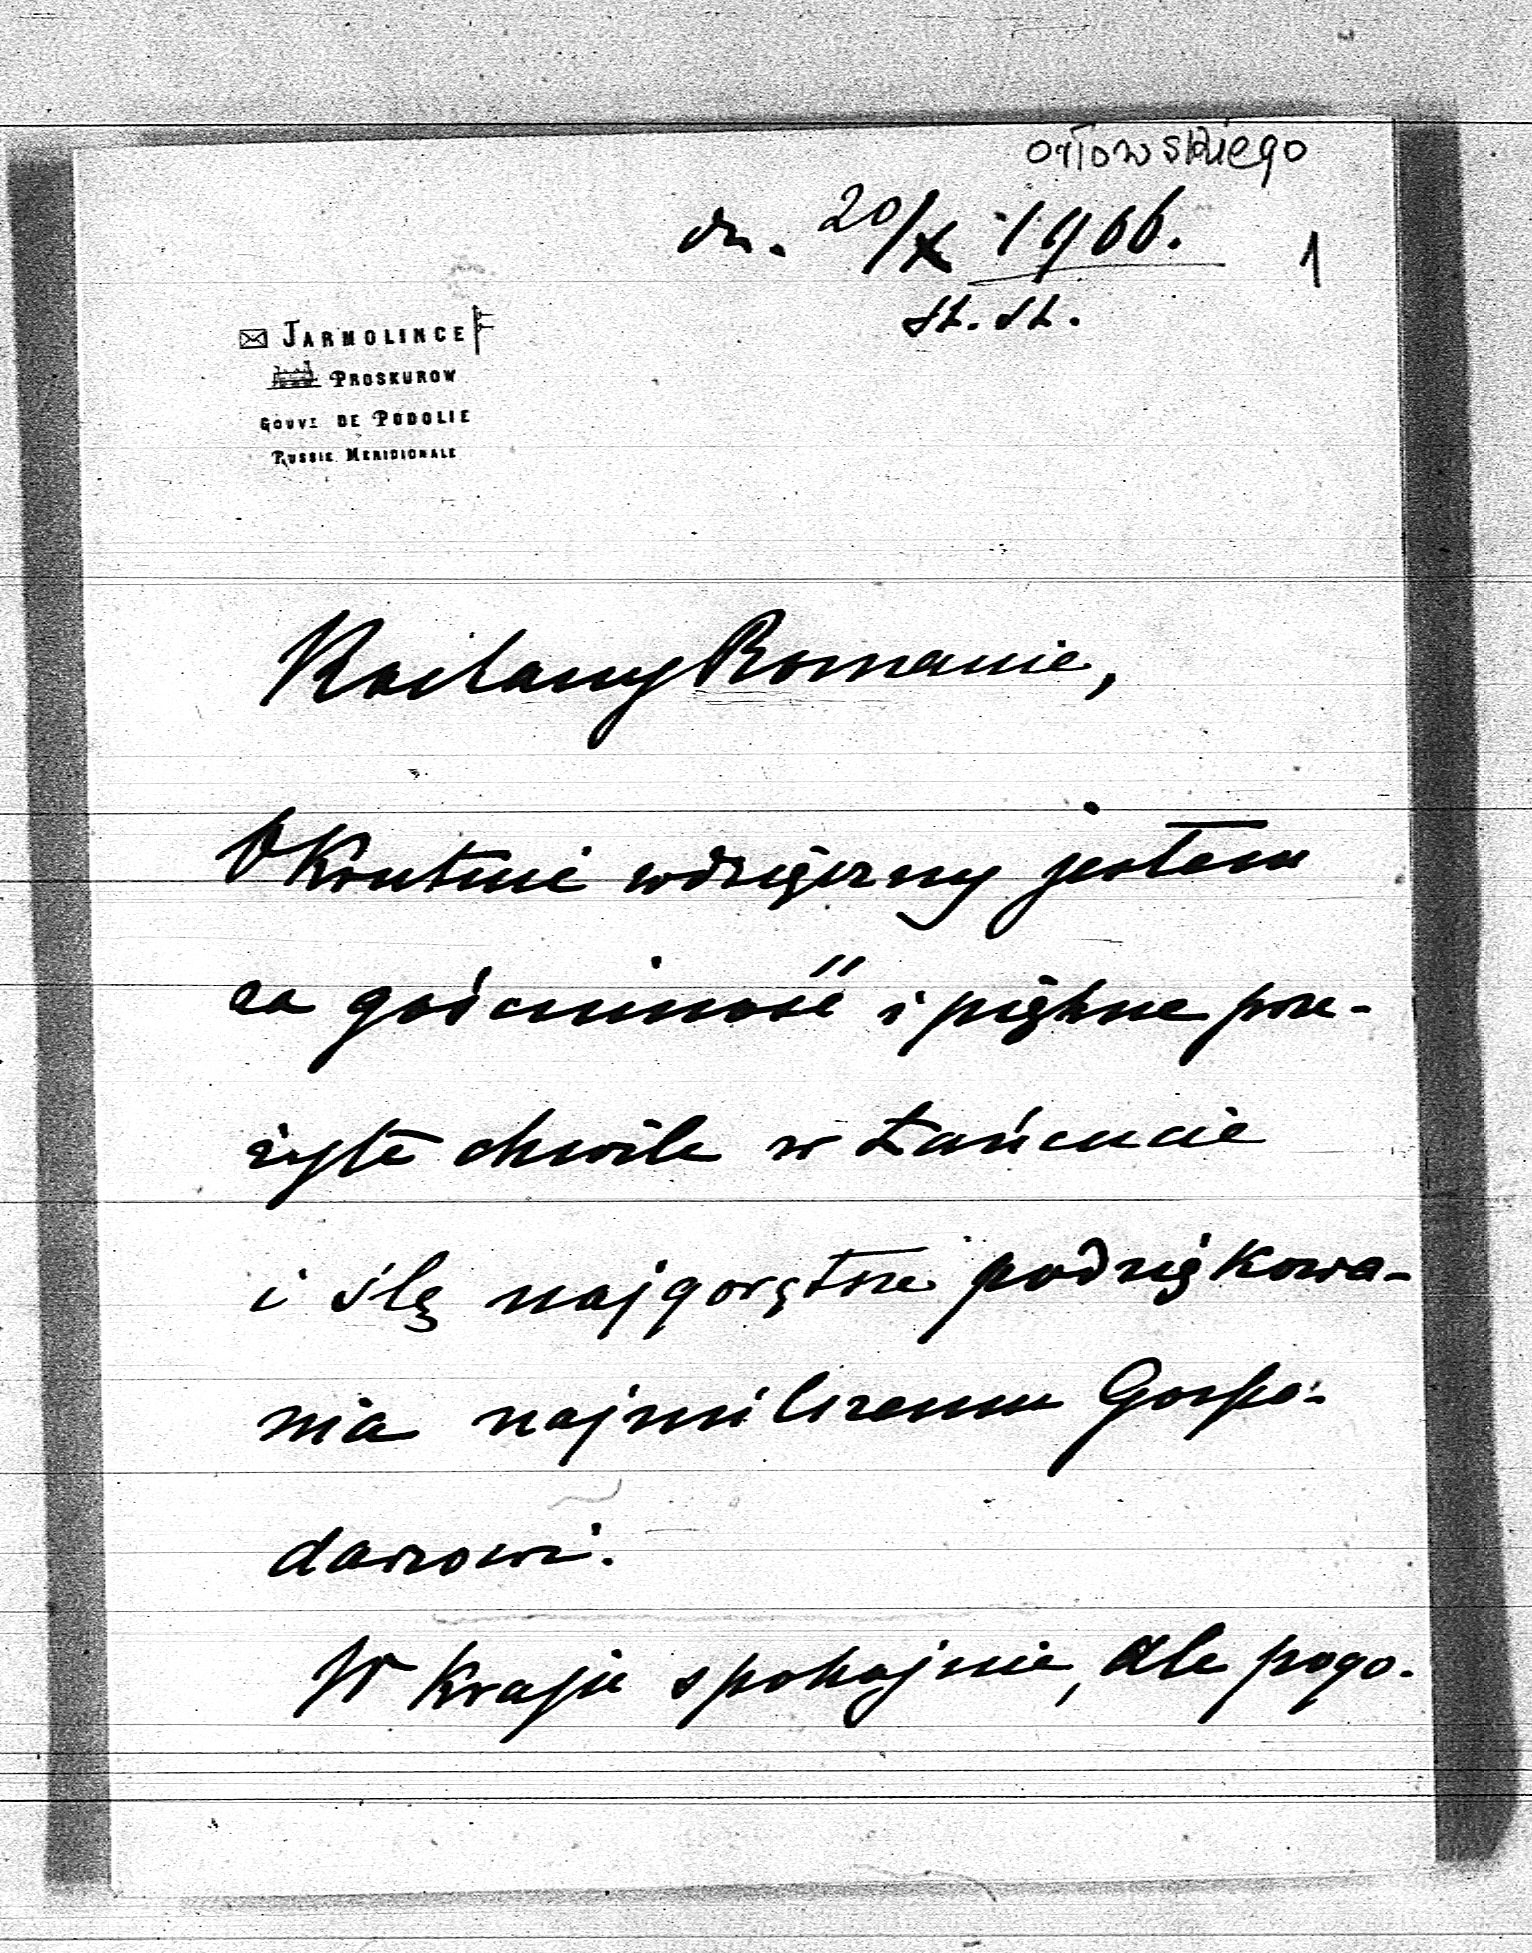 Orłowskiego
dn. 20/X 1906.
1
st. st.
JARMOLINCE
PROSKUROW
GOUVT DE PODOLIE
RUSSIE MERIDIONALE
Kochany Romanie,
Okrutnie wdzięczny jestem
za gościnność i piękne prze-
żyte chwile w Łańcucie
i ślę najgorętsze podziękowa-
nia najmilszemu Gospo-
darzowi.
W Kraju spokojnie, ale pogo-